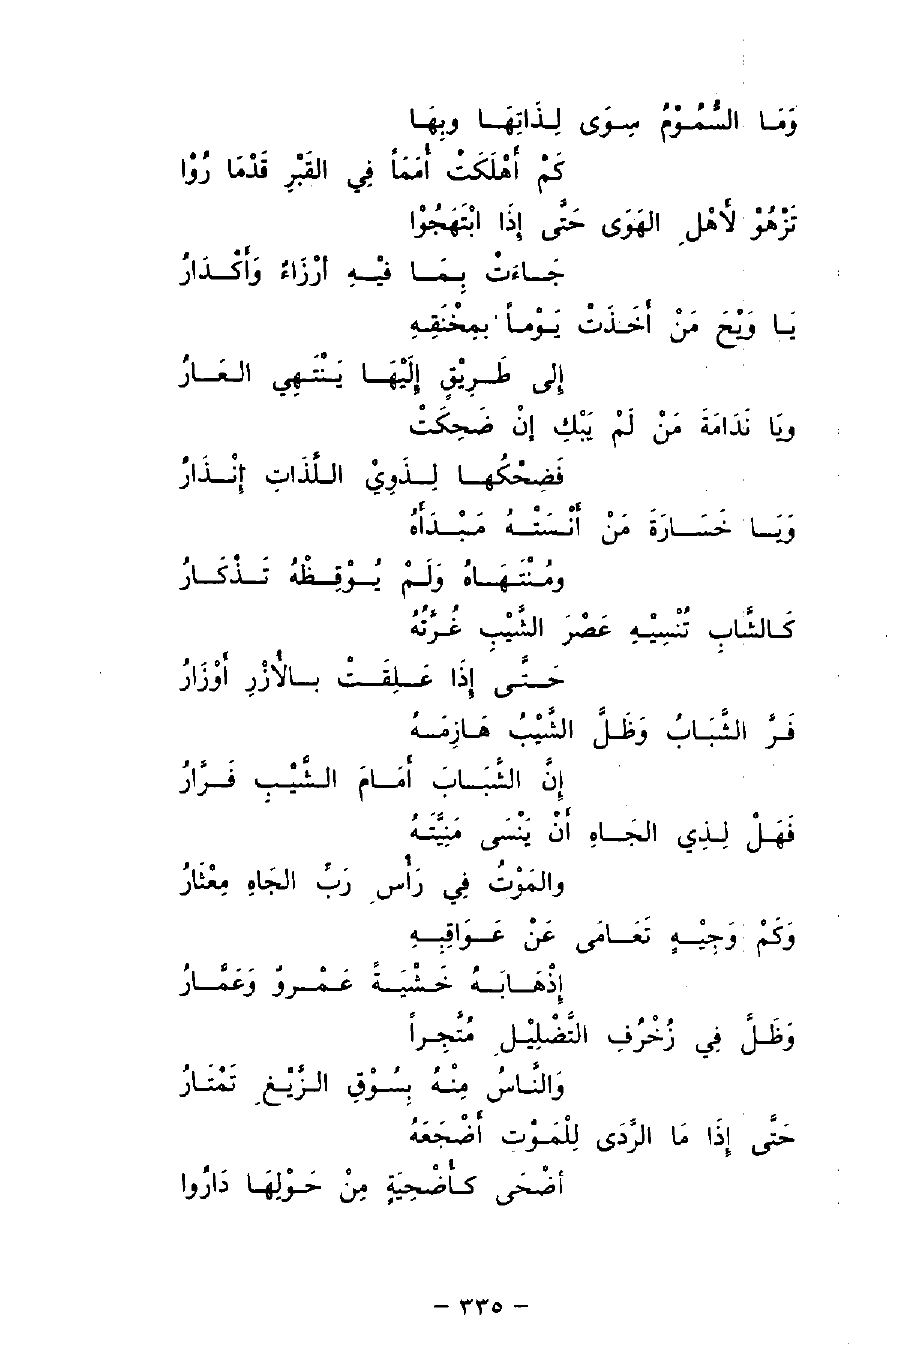 وَمَا السُّمُوْمُ سِوَى لِذَاتِهَا وبِهَا
كَمْ أَهْلَكَتْ أُمَمَاً فِي القَبْرِ قَدْمَا زُوْا
تَزْهُوْ لأَهْلِ الهَوَى حَتَّى إِذَا ابْتَهَجُوْا
جَاءَتْ بِمَا فيْهِ أرْزَاءُ وَأَكْدَارُ
يَا وَيْحَ مَنْ أَخَذَتْ يَوْماً بِمِخْنَقِهِ
إلى طَرِيْقٍ إِلَيْهَا يَنْتَهِي العَارُ
ويَا نَدَامَةَ مَنْ لَمْ يَبْكِ إنْ ضَحِكَتْ
فَضِحْكُها لِذَوِيْ اللَّذَاتِ إنْذَارُ
وَيَا خَسَارَةَ مَنْ أَنْسَتْهُ مَبْدَأَهُ
ومُنْتَهَاهُ وَلَمْ يُوْقِظْهُ تَذْكَارُ
كَالشَّابِ تُنْسِيْهِ عَصْرَ الشَّيْبِ غُرَّتُهُ
حَتَّى إِذَا عَلِقَتْ بالأَزْرِ أَوْزَارُ
فَرَّ الشَّبَابُ وَظَلَّ الشَّيْبُ هَازِمَهُ
إِنَّ الشَّبَابَ أَمَامَ الشَّيْبِ فَرَّارُ
فَهَلْ لِذِي الجَاهِ أَنْ يَنْسَى مَنِيَّتَهُ
والمَوْتُ فِي رَأْسِ رَبِّ الجَاهِ مِعْثَارُ
وَكَمْ وَجِيْهٍ تَعَامَى عَنْ عَوَاقِبِهِ
إِذْهَابَهُ خَشْيَةً عَمْروٌ وَعَمَّارُ
وَظَلَّ فِي زُخْرُفِ التَّضْلِيْلِ مُتَّجِراً
وَالنَّاسُ مِنْهُ بِسُوْقِ الزَّيْغِ تَمْتَارُ
حَتَّى إِذَا مَا الرَّدَى لِلْمَوْتِ أَضْجَعَهُ
أضْحَى كَأُضْحِيَةٍ مِنْ حَوْلِهَا دَارُوا
- ٣٣٥ -